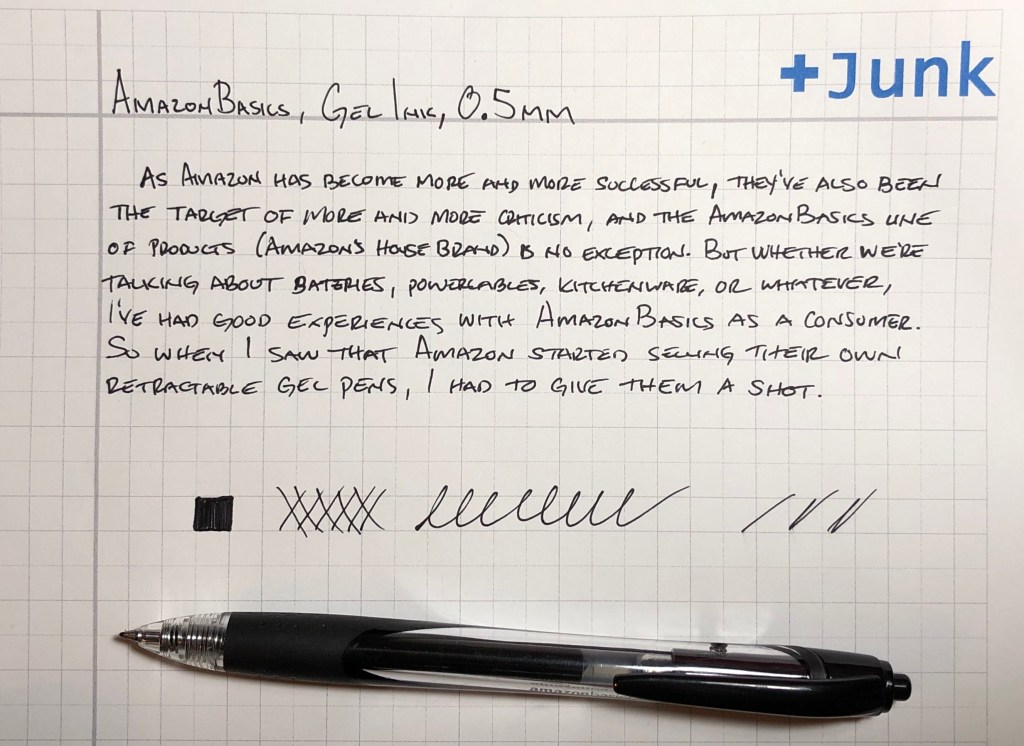 +Junk
AmazonBasics, Gel Ink, 0.5mm
As Amazon has become more and more successful, they've also been
the target of more and more criticism, and the AmazonBasics line
of products (Amazon's house brand) is no exception. But whether we're
talking about bateries, powercables, kitchenware, or whatever,
I've had good experiences with AmazonBasics as a consumer.
So when I saw that Amazon started selling their own
retractable gel pens, I had to give them a shot.